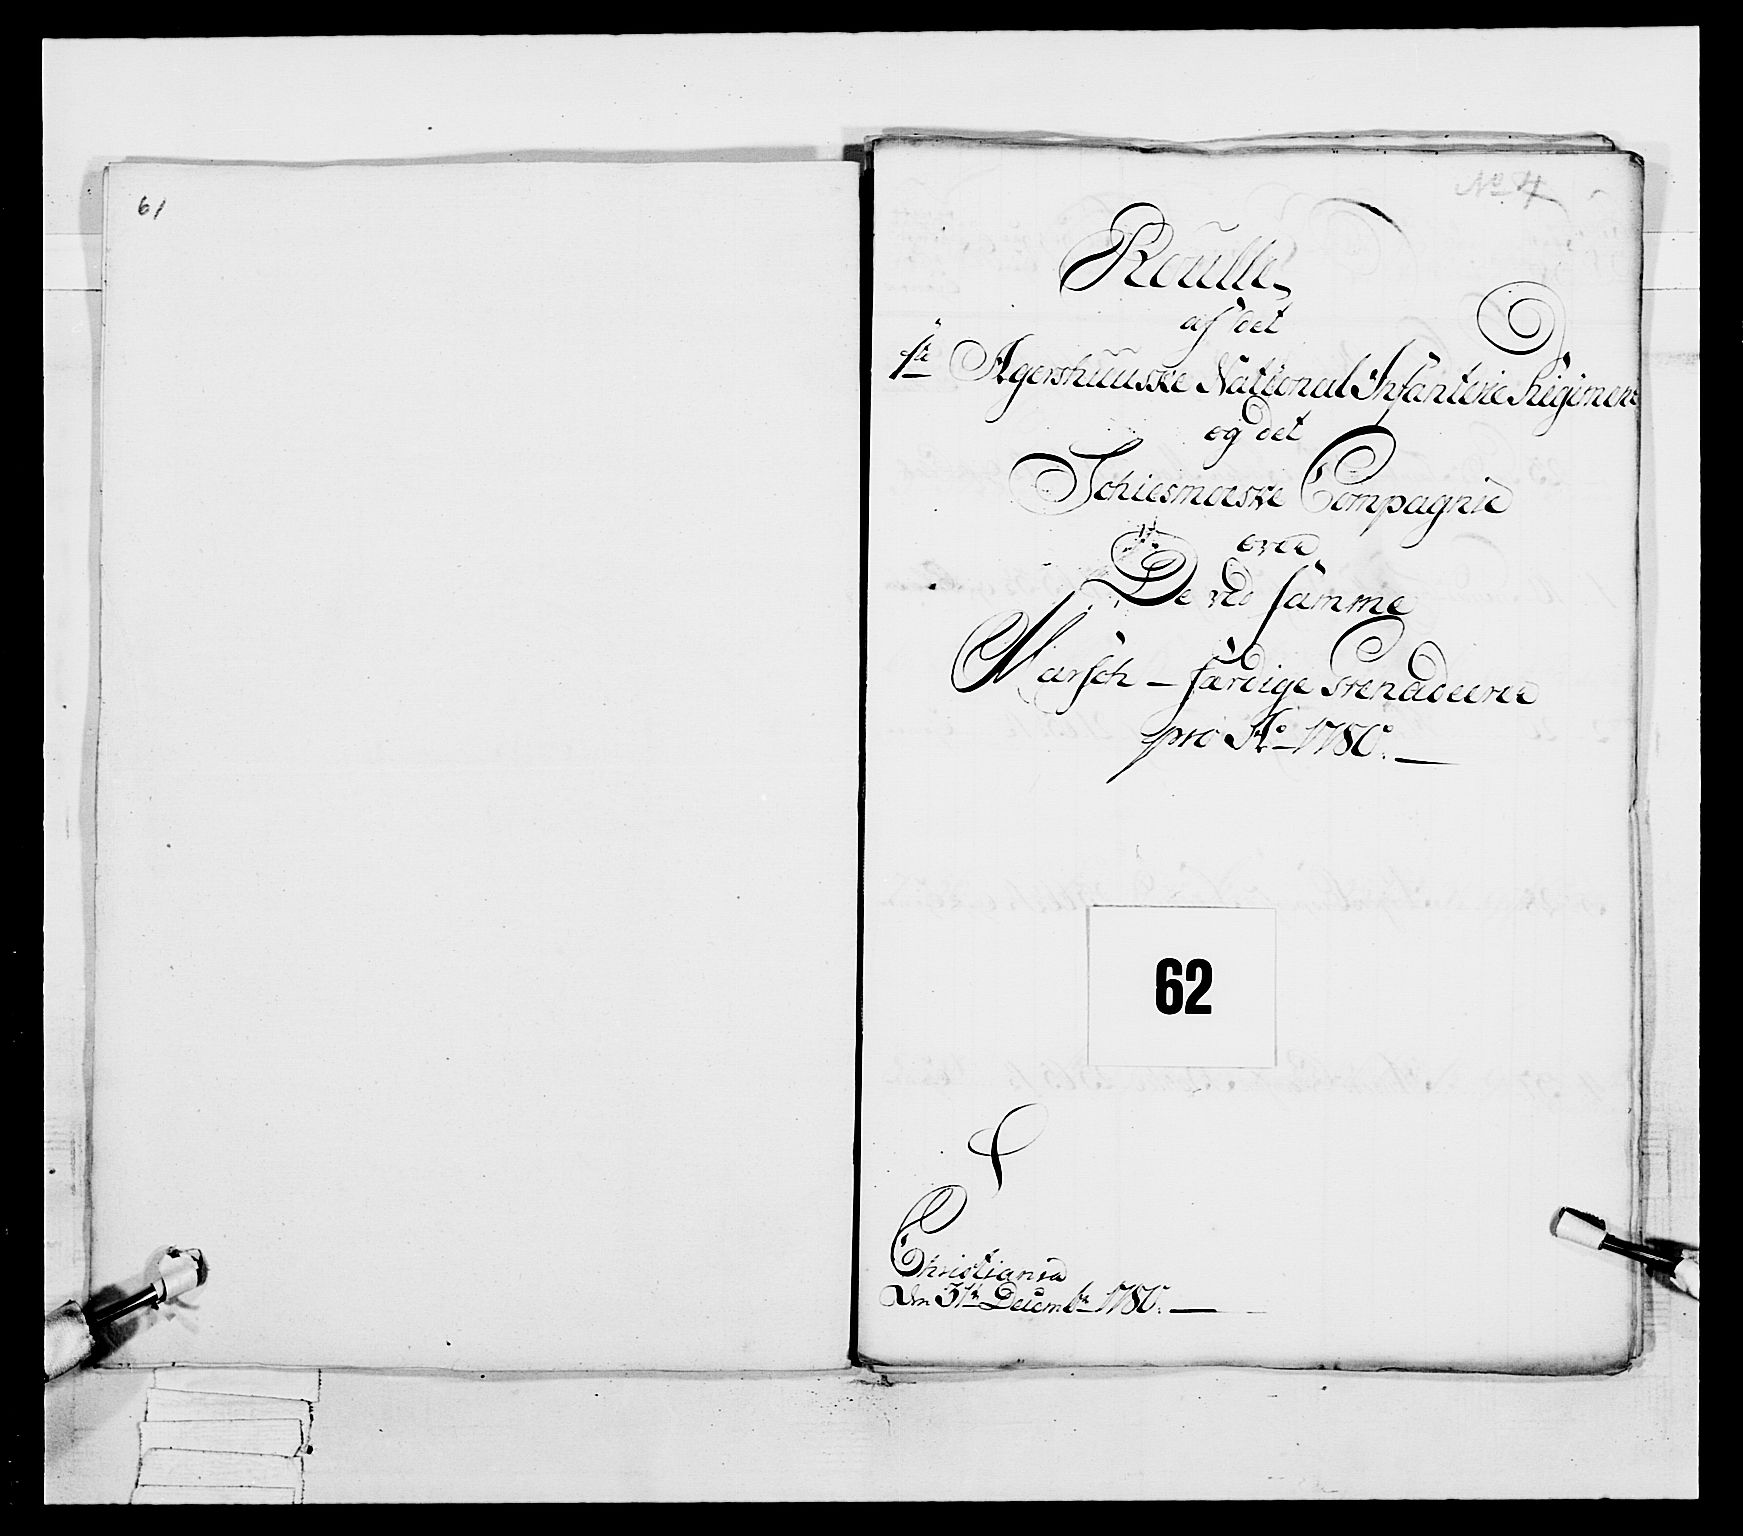 61
No 4
Roulle
af det
1te Agershuuske National Infanterie Regiment
og det
Schiesmoeske Compagnie
over
De ved samme
Marsch-færdige Grenadeerer
pro Ao 1780.
62
Christiania
den 31te Decembr 1780.